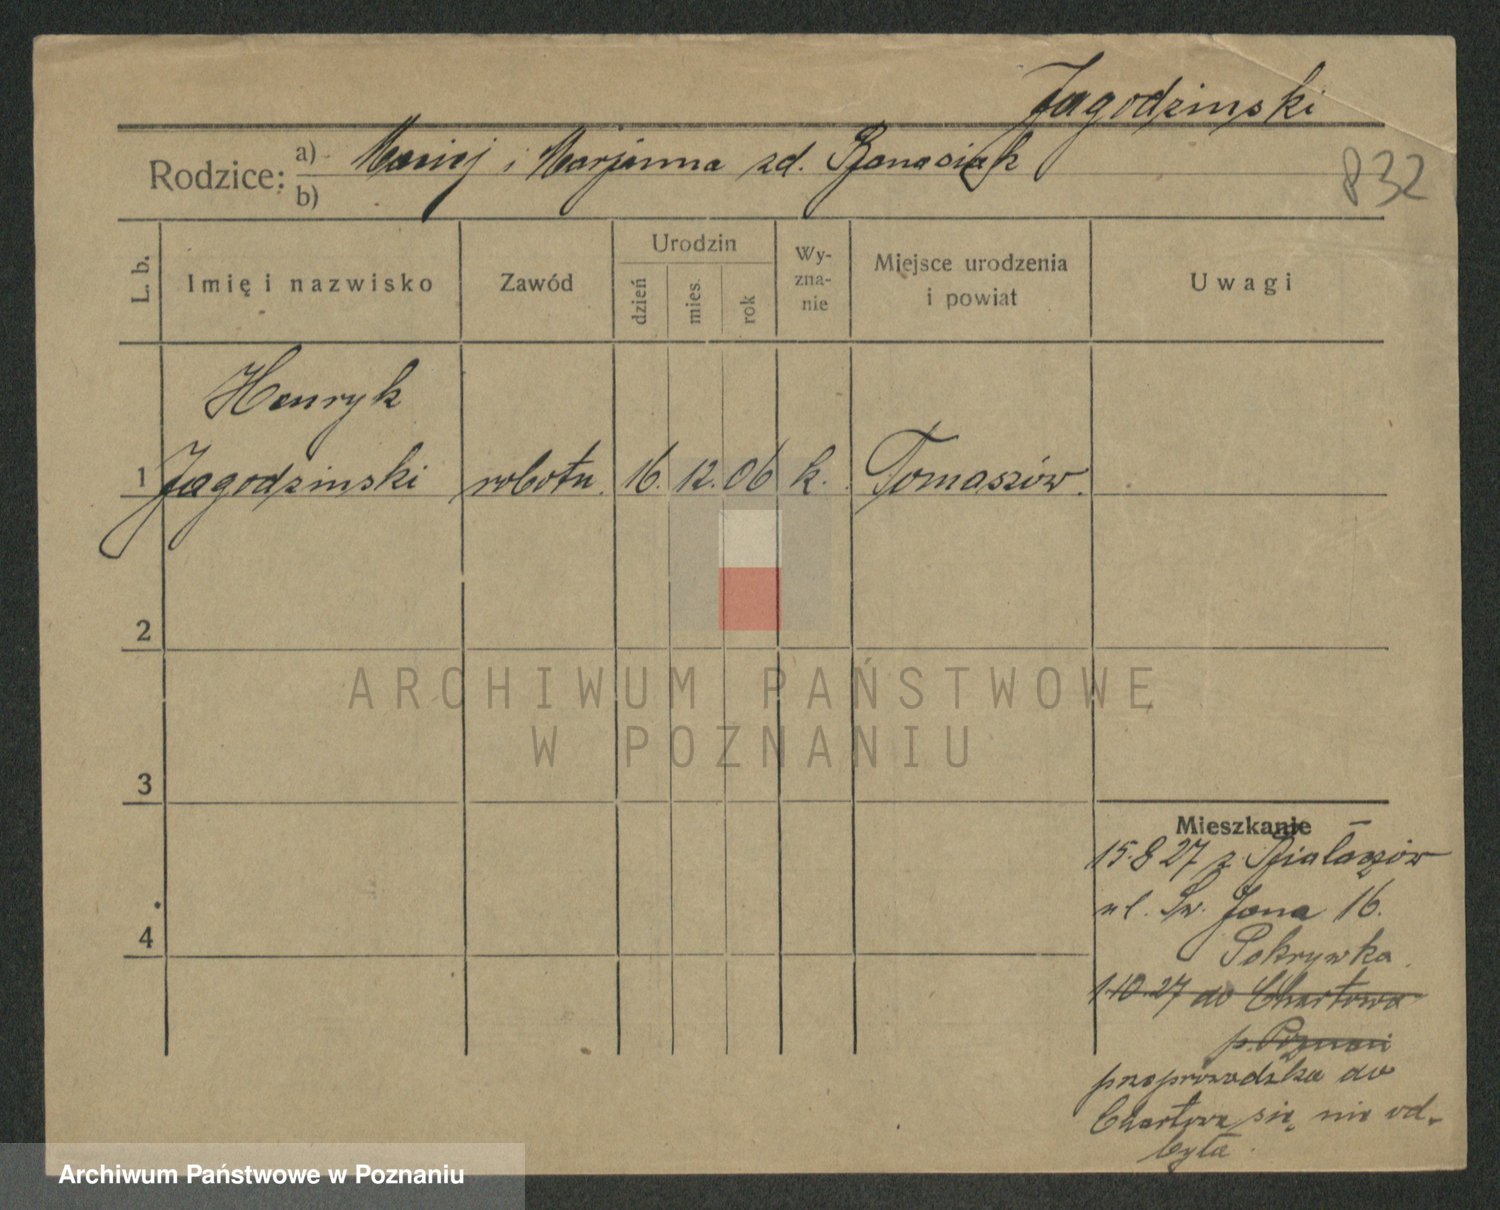 Jagodzinski
Rodzice: a) Maciej i Marjanna zd. Banasiak
b)
832
L. b.
Imię i nazwisko
Zawód
Urodzin
dzień
mies.
rok
Wy-
zna-
nie
Miejsce urodzenia
i powiat
Uwagi
Henryk
1 Jagodzinski robotn. 16. 12. 06 k. Tomaszów.
2
ARCHIWUM PAŃSTWOWE
W POZNANIU
3
Mieszkanie
15.8 27 z
ul. Św. Jana 16.
Pokrywka.
1.10.27 do Chartowa
p. Poznań
przeprowadzka do
Chartowa się nie od-
była.
4
Archiwum Państwowe w Poznaniu